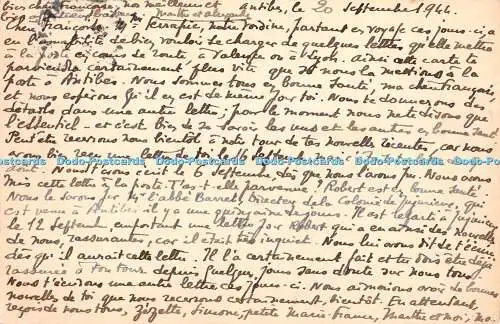 bien chère Françoise, nos meilleurs et Antibes, le 20 Septembre 1944.
Marthe et
Chère Françoise. Mr Serrapie, notre voisine, partant en voyage ces jours-ci, a
eu l'amabilité de bien vouloir se charger de quelques lettres qu'elle mettra
à la poste en cours de route à Valence ou à Lyon. Ainsi cette carte te
parviendra certainement plus vite que si nous la mettions à la
poste à Antibes. Nous sommes tous en bonne santé, ma chère Françoise,
et nous espérons qu'il en est de même pour toi. Nous te donnerons des
détails dans une autre lettre; pour le moment nous ne te disons que
l'essentiel - et c'est bien de se savoir les uns et les autres en bonne santé.
Peut être recevrons nous bientôt à notre tour de tes nouvelles récentes, car nous
avons bien reçu une lettre de toi
Dodo-Postcards Dodo-Postcards Dodo-Postcards Dodo-Postcards Dodo-Postcards Dodo-Postcards
dont Nous t'avons écrit le Septembre, dès que nous l'avons pu. Nous avons
mis cette lettre à la poste. T'est-elle parvenue? Robert est en bonne santé.
Nous le savons par Mr l'abbé Barret, Directeur de la Colonie de Jujurieux, qui
est venu à Antibes il y a une quinzaine de jours. Il est reparti à Jujurieux
le 12 Septembre, emportant une lettre pour Robert qui a eu ainsi des nouvelles
de nous, rassurantes, car il était très inquiet. Nous lui avons dit de t'écrire
dès qu'il aurait cette lettre. Il l'a certainement fait et tu dois être déjà
rassurée à ton tour depuis quelques jours sans doute sur nous tous.
Nous t'écrirons une autre lettre ces jours-ci. Nous aimerions avoir de bonnes
nouvelles de toi que nous recevrons certainement bientôt. En attendant,
reçois de nous tous, Zézette, Simone, petite Marie-France, Marthe et moi, ma